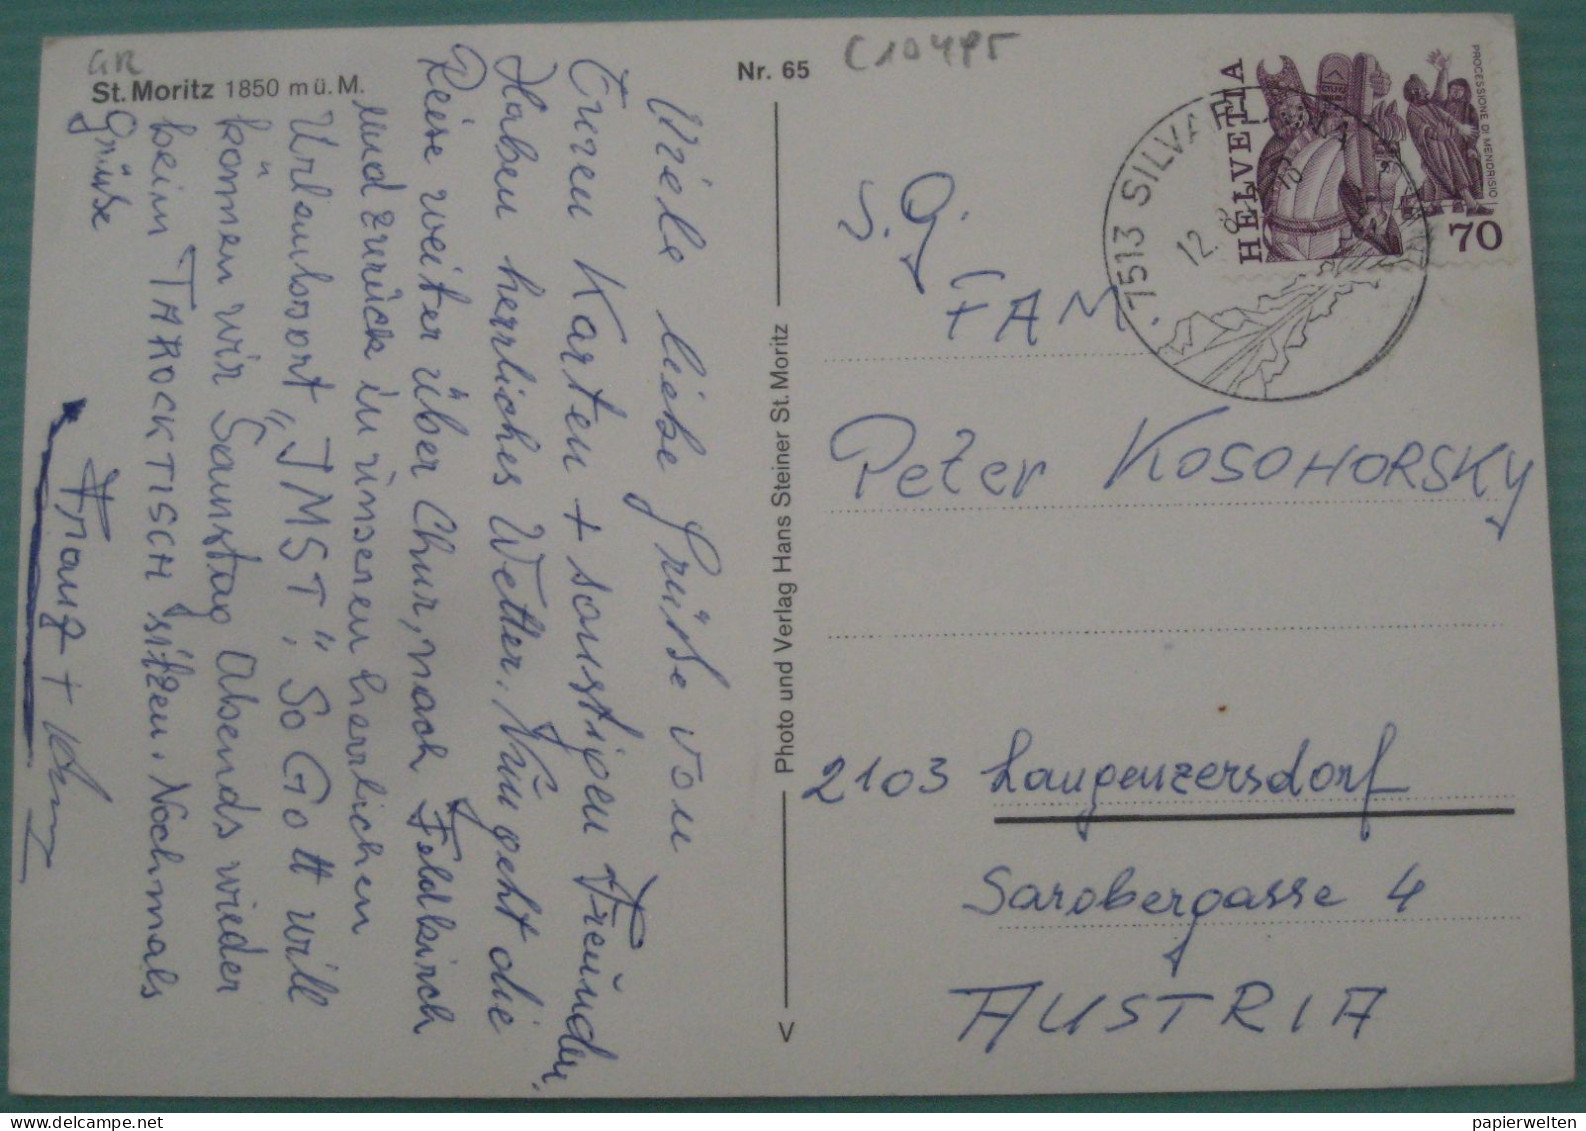 GR
St. Moritz 1850 m ü. M.
Nr. 65
C10495
Viele liebe Grüße von
Euren Karten + sonstigen Freunden.
Haben herrliches Wetter. Nun geht die
Reise weiter über Chur, nach Feldkirch
und zurück in unseren herrlichen
Urlaubsort „JMST“. So Gott will
kömen wir Samstag Abends wieder
beim TAROCKTISCH sitzen. Nochmals
Grüße
Franz +
Photo und Verlag Hans Steiner St. Moritz
V
HELVETIA
PROCESSIONE DI MENDRISIO
70
7513 SILVA
12. 8
S.G.
FAM.
Peter KOSOHORSKY
2103 Langenzersdorf
Sarobergasse 4
AUSTRIA
papierwelten